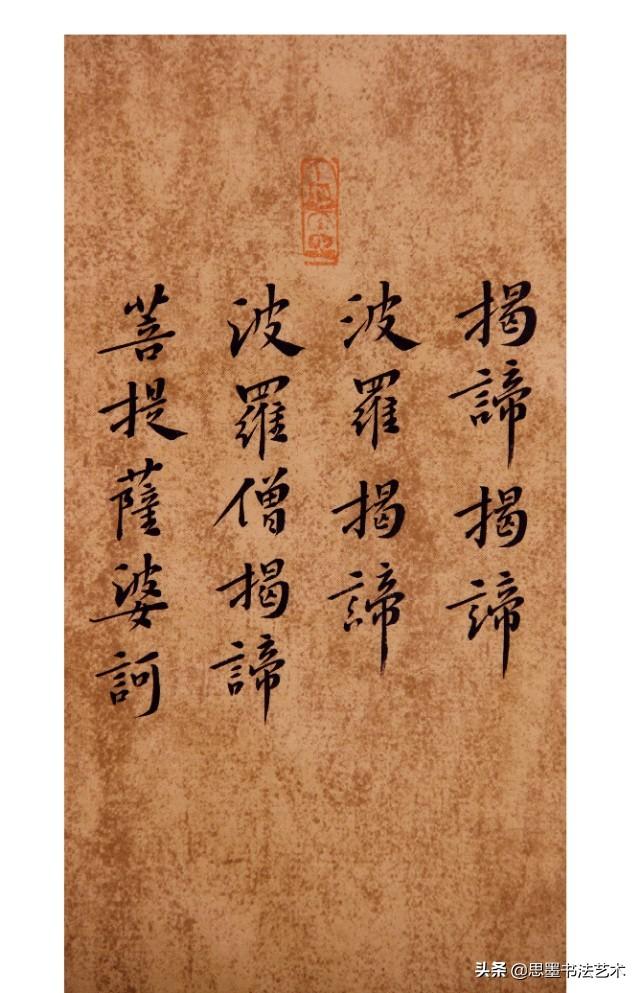 揭諦揭諦
波羅揭諦
波羅僧揭諦
菩提薩婆訶
头条 @思墨书法艺术